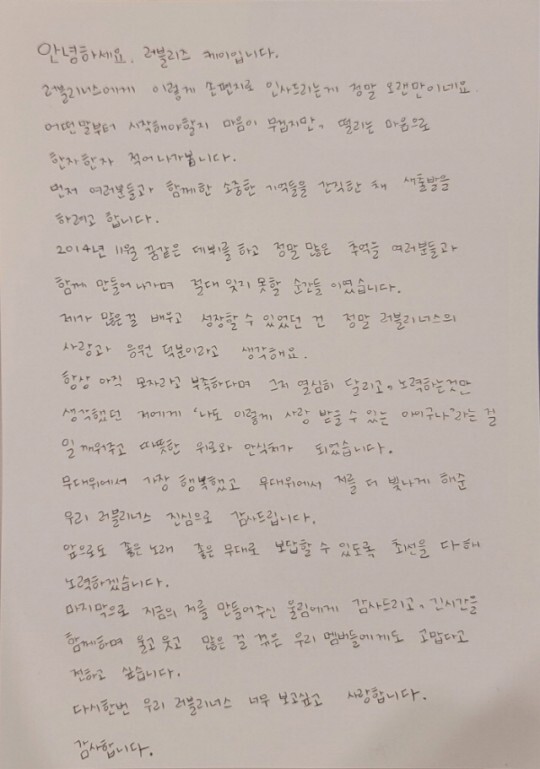 안녕하세요, 러블리즈 케이입니다.
러블리너스에게 이렇게 손편지로 인사드리는게 정말 오랜만이네요.
어떤말부터 시작해야할지 마음이 무겁지만, 떨리는 마음으로
한자한자 적어나가봅니다.
먼저 여러분들과 함께한 소중한 기억들을 간직한 채 새출발을
하려고 합니다.
2014년 11월 꿈같은 데뷔를 하고 정말 많은 추억을 여러분들과
함께 만들어나가며 절대 잊지 못할 순간들 이였습니다.
제가 많은걸 배우고 성장할 수 있었던 건 정말 러블리너스의
사랑과 응원 덕분이라고 생각해요.
항상 아직 모자라고 부족하다며 그저 열심히 달리고, 노력하는것만
생각했던 저에게 '나도 이렇게 사랑 받을 수 있는 아이구나'라는 걸
일깨워주고 따뜻한 위로와 안식처가 되었습니다.
무대위에서 가장 행복했고 무대위에서 저를 더 빛나게 해준
우리 러블리너스 진심으로 감사드립니다.
앞으로도 좋은노래 좋은 무대로 보답할 수 있도록 최선을 다해
노력하겠습니다.
마지막으로 지금의 저를 만들어주신 울림에게 감사드리고, 긴시간을
함께하며 울고 웃고 많은 걸 겪은 우리 멤버들에게도 고맙다고
전하고 싶습니다.
다시한번 우리 러블리너스 너무 보고싶고 사랑합니다.
감사합니다.